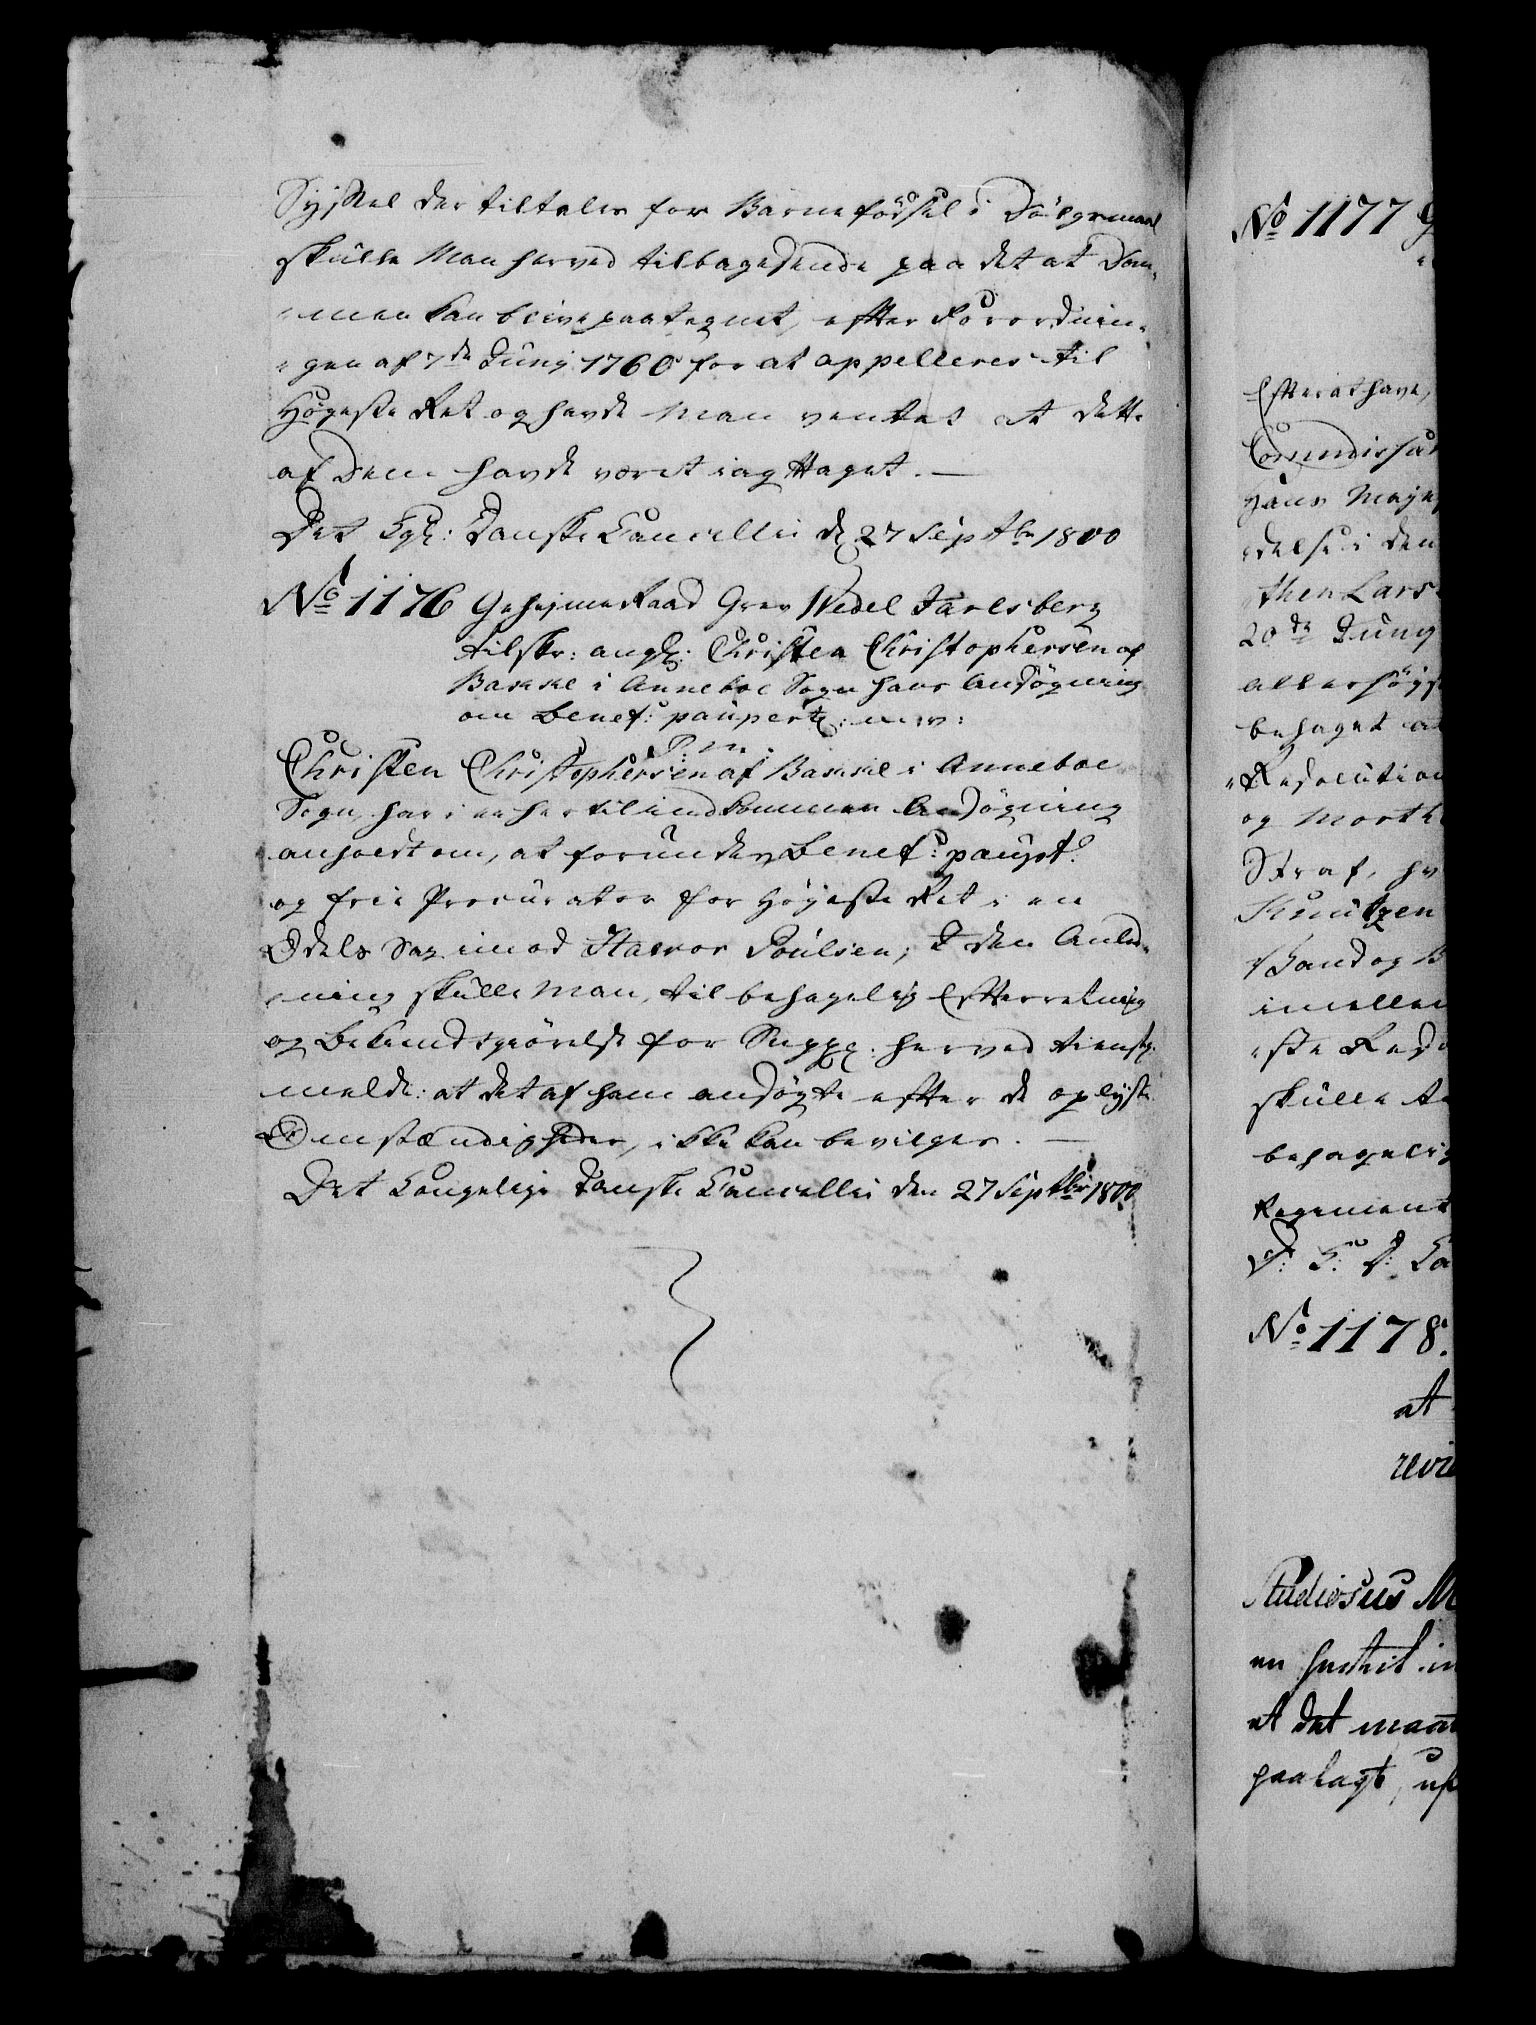 Syssel der tiltales for Barnefødsel i Dølgsmaal
skulle Man herved tilbagesende paa det at Dom-
-men kan blive paategnet, efter Forordnin-
-gen af 7de Junij 1760 for at appelleres til
Høyeste Ret og havde Man ventet at dette
af Dem havde været iagttaget. —
Det Kgl: Danske Cancellie d. 27 Septbr 1800
No 1176 Geheyme Raad Grev Wedel Jarlsberg
tilskr: angl: Christen Christophersen af
Bakke i Anneboe Sogn hans Ansøgning
om Benef: paupert: m: v:
P. M.
Christen Christophersen af Bakke i Anneboe
Sogn, har i en hertil indkommen Ansøgning
anholdt om, at forundes Benef: paupt:
og frie Procurator for Høyeste Ret i en
Odels Sag imod Halvor Poulsen; I den Anled-
-ning skulle Man, til behagelig Efterretning
og Bekiendtgiørelse for Suppl: herved tienstl.
melde: at det af ham ansøgte efter de oplyste
Omstændigheder, ikke kan bevilges. —
Det Kongelige Danske Cancellie den 27 Septbr 1800
No 1177
Efter at have,
Commissar
Hans Maje
-delse i den
then Lars
20de Juny
allerhøyst
behaget at
-Resolution
og Morth
Straf, hv
Knudzen
Vand og B
imellem
-ste Reso
skulle
behagelig
Regiment
D: K: D: Ca
No 1178.
at
Studiosus M
en hertil in
at det maat
paalagt,